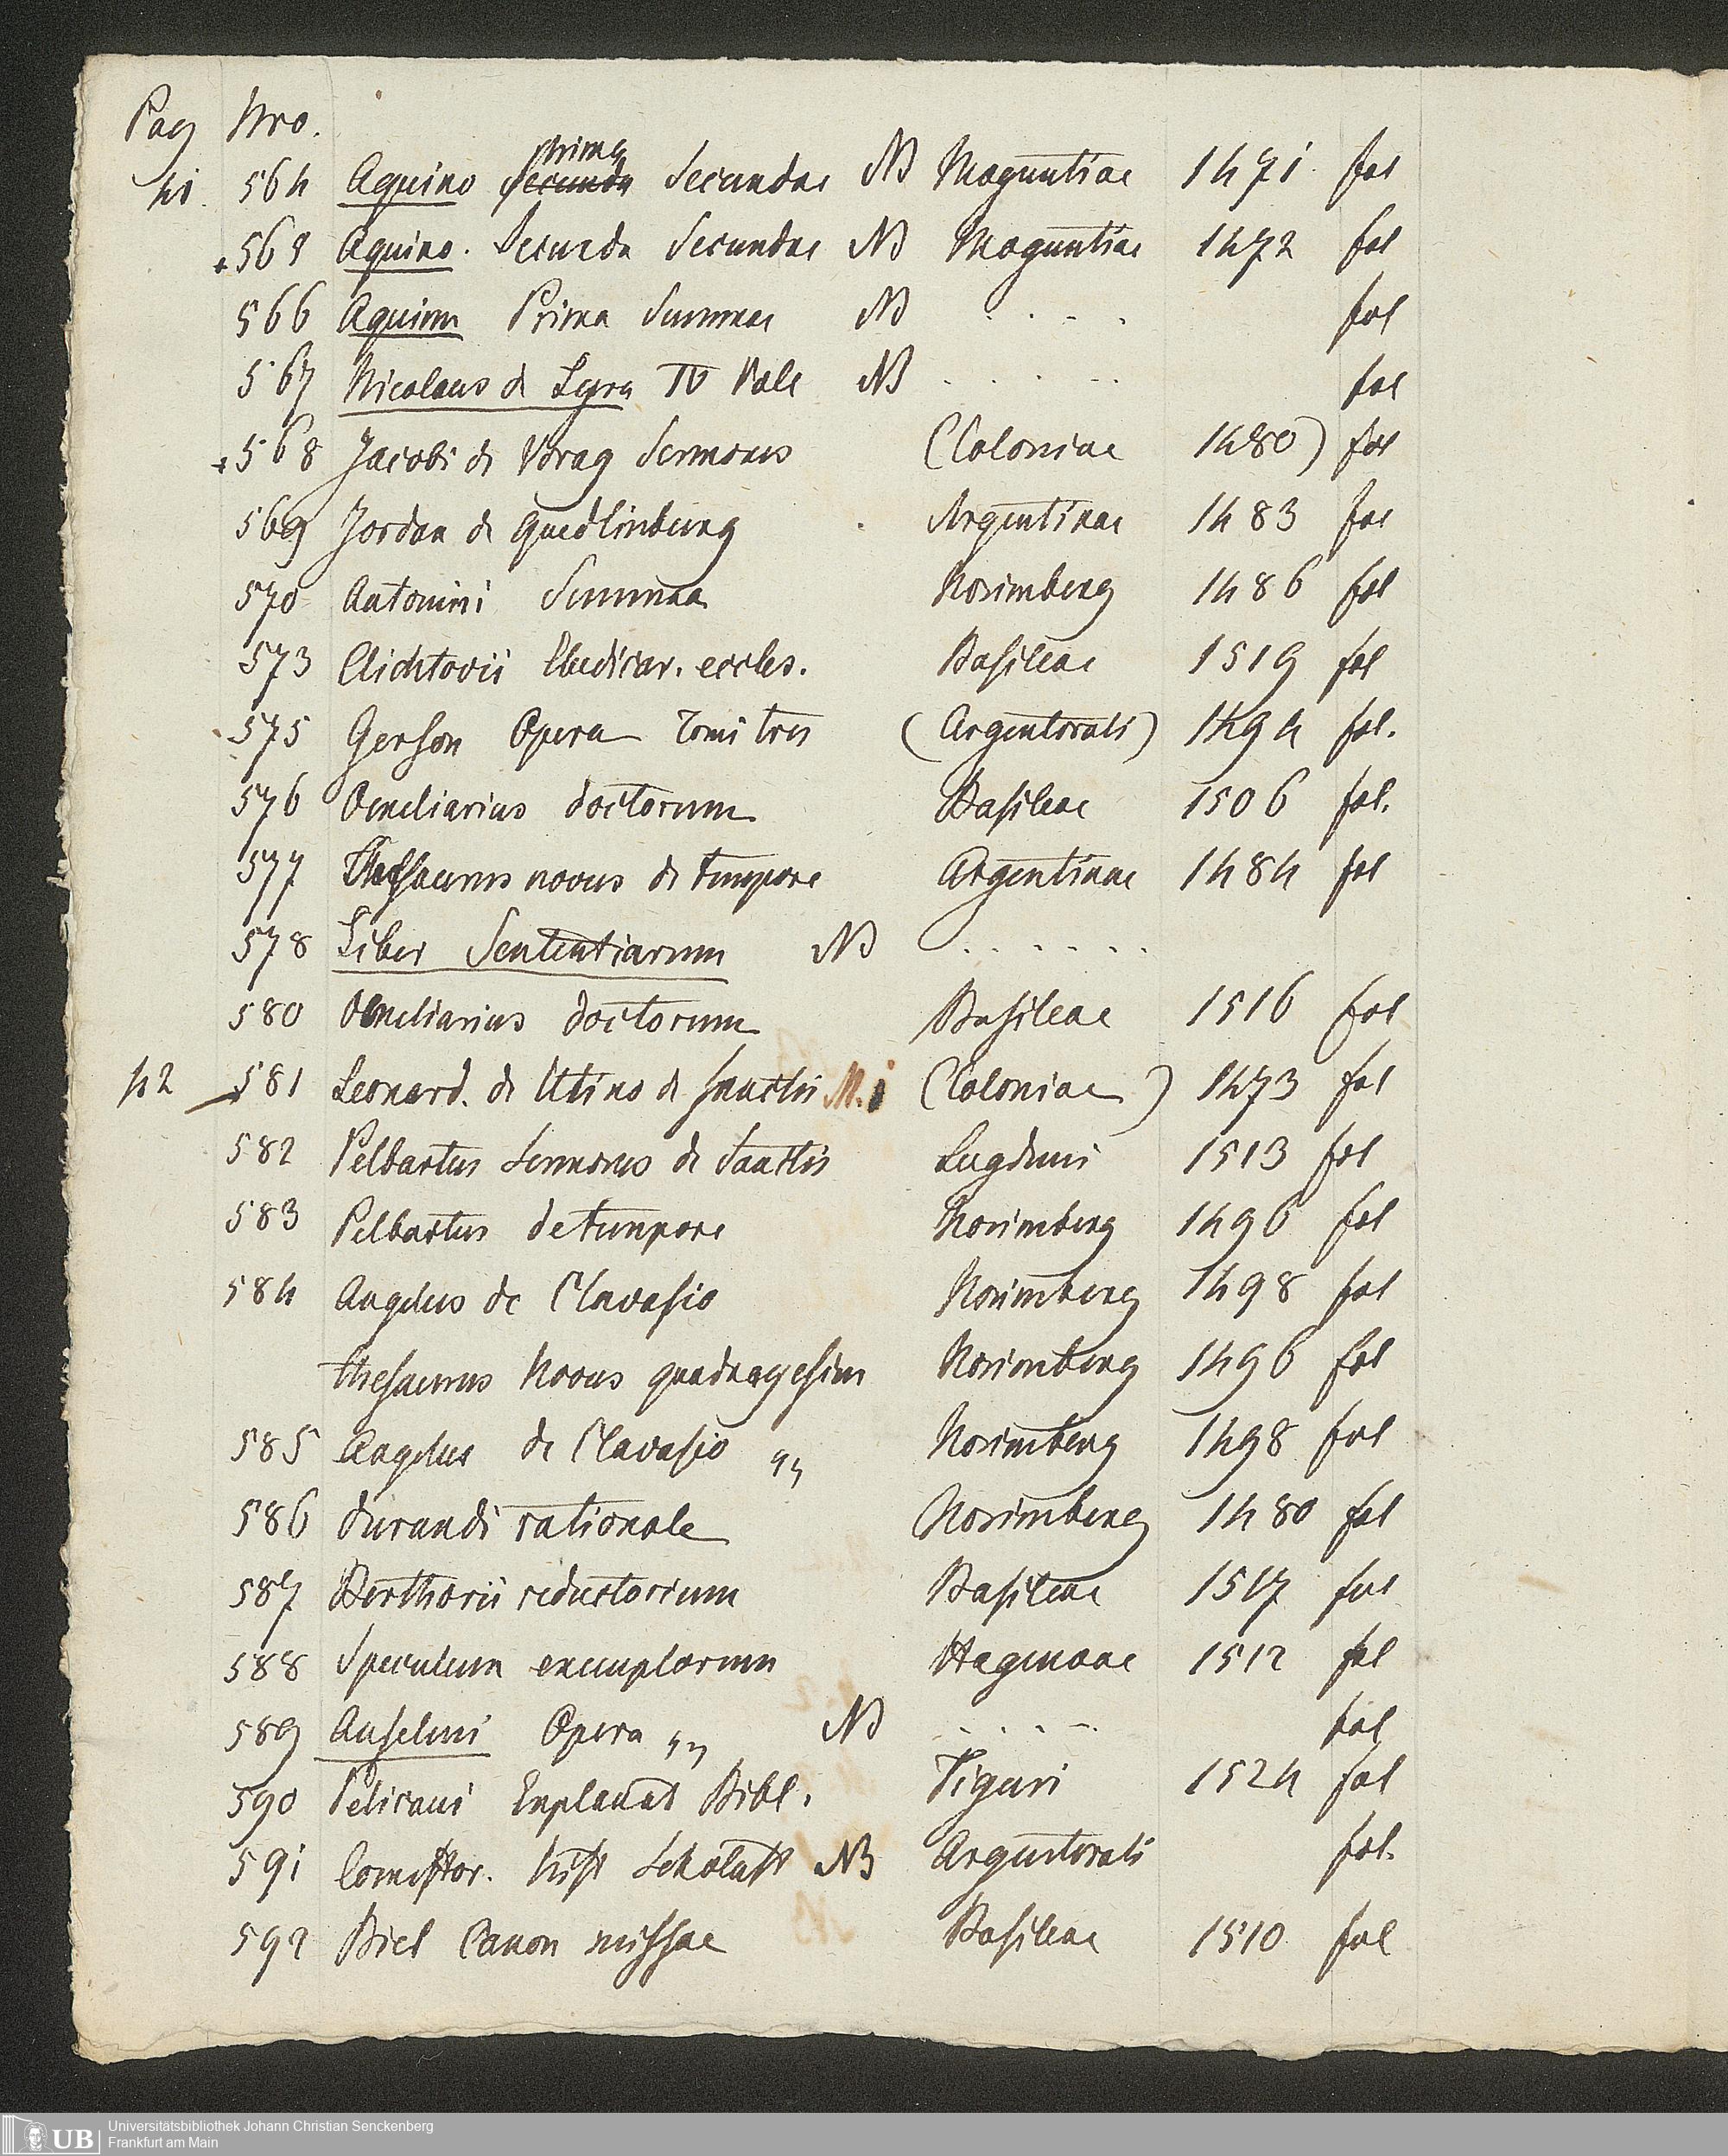 Pag Nro.
41. 564 Aquino Secunda prima Secundae NB Moguntiae 1471. fol
+565 Aquino. Secunda Secundae NB Moguntiae 1472 fol
566 Aquini Prima Summae NB . . - . fol
567 Nicolaus de Lyra IV Vole NB . . . . . fol
+568 Jacobi de Vorag Sermones (Coloniae 1480) fol
569 Jordan de Quedlinburg . Argentinae 1483 fol
570 Antonini Summa Norimberg 1486 fol
573 Clichtovii Eludicar. eccles. Basileae 1519 fol
575 Gerson Opera Tomi tres (Argentorati) 1494 fol.
576 Omeliarius doctorum Basileae 1506 fol.
577 Thesaurus novus de tempore Argentinae 1484 fol
578 Liber Sententiarum NB . . . . . . .
580 Omeliarius doctorum Basileae 1516 fol
42 581 Leonard. de Utino de Sanctis (Coloniae) 1473 fol
582 Pelbartus Sermones de Sanctis Lugduni 1513 fol
583 Pelbartus de tempore Norimberg 1496 fol
584 Angelus de Clavasio Norimberg 1498 fol
thesaurus Novus quadragesim Norimberg 1496 fol
585 Angelus de Clavasio " Norimberg 1498 fol
586 durandi rationale Norimberg 1480 fol
587 Berthorii reductorium Basileae 1517 fol
588 Speculum exemplorum Hagenoae 1512 fol
589 Anselmi Opera " NB . . . - fol
590 Pelicani Explanat Bibl. Tiguri 1524 fol
591 Comestor. hist Scholast NB Argentorati fol.
592 Biel Canon missae Basileae 1510 fol
Universitätsbibliothek Johann Christian Senckenberg
UB Frankfurt am Main